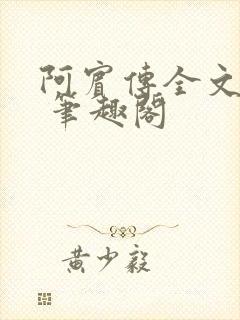 阿賓傳全文
筆趣閣
黃少毅